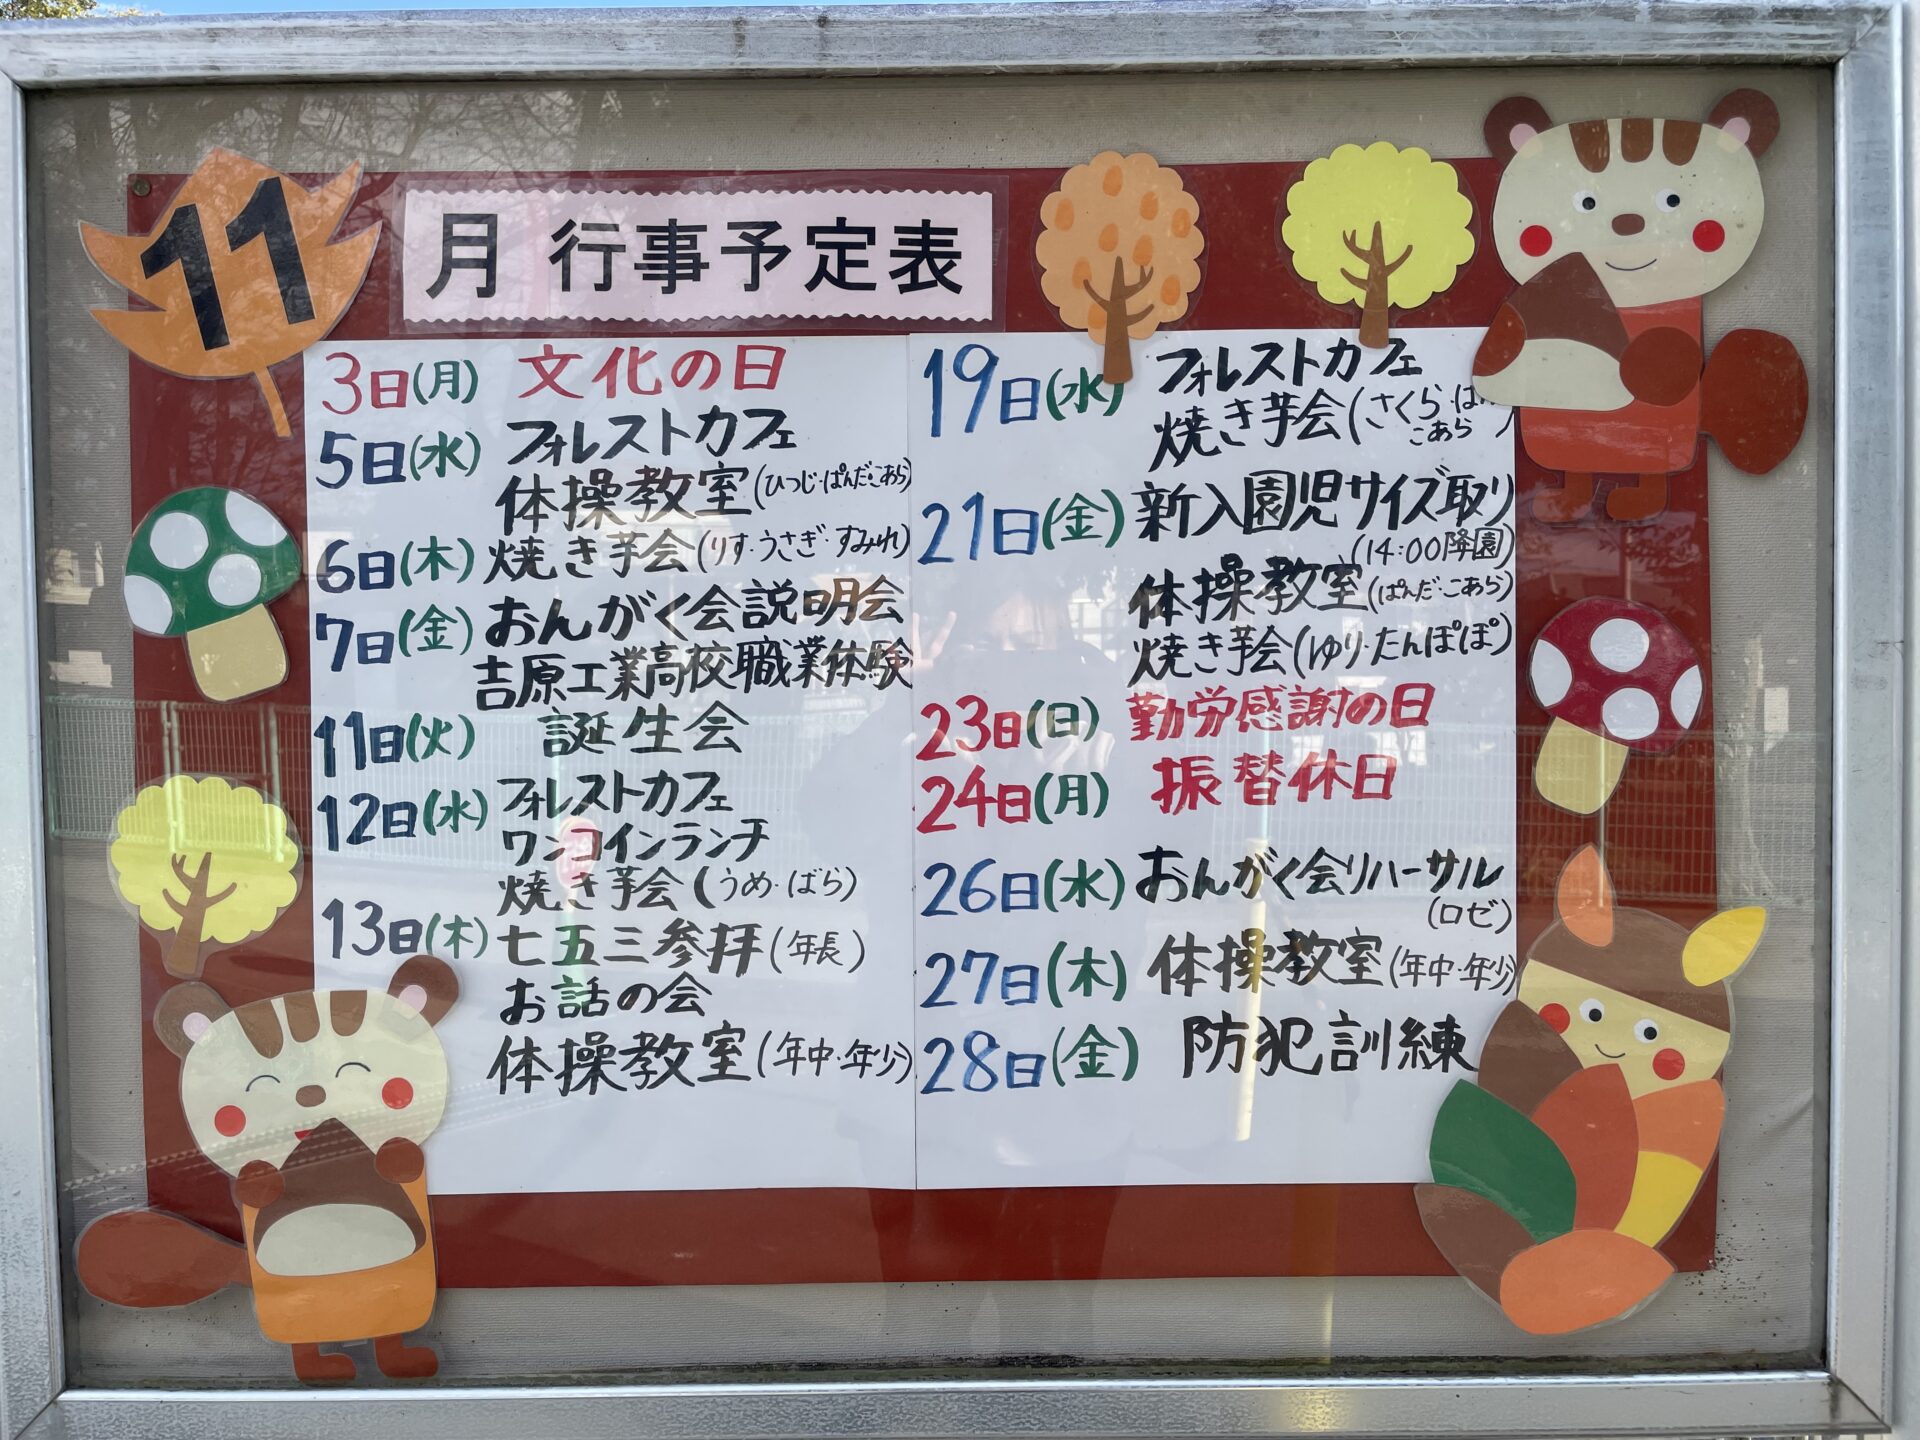 11月 行事予定表
3日(月) 文化の日
5日(水) フォレストカフェ
体操教室(ひつじ・ぱんだ・こあら)
6日(木) 焼き芋会(りす・うさぎ・すみれ)
7日(金) おんがく会説明会
吉原工業高校職業体験
11日(火) 誕生会
12日(水) フォレストカフェ
ワンコインランチ
焼き芋会(うめ・ばら)
13日(木) 七五三参拝(年長)
お話の会
体操教室(年中・年少)
19日(水) フォレストカフェ
焼き芋会(さくら・
こあら)
21日(金) 新入園児サイズ取り
(14:00降園)
体操教室(ぱんだ・こあら)
焼き芋会(ゆり・たんぽぽ)
23日(日) 勤労感謝の日
24日(月) 振替休日
26日(水) おんがく会リハーサル
(ロゼ)
27日(木) 体操教室(年中・年少)
28日(金) 防犯訓練